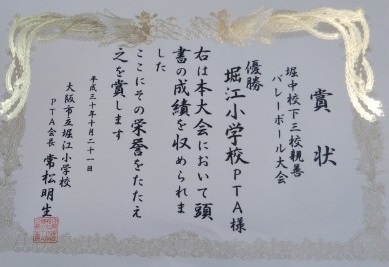 賞状
堀中校下三校親善
バレーボール大会
優勝
堀江小学校PTA様
右は本大会において頭
書の成績を収められま
した
ここにその栄誉をたたえ
之を賞します
平成三十年十月二十一日
大阪市立堀江小学校
PTA会長 常松明生